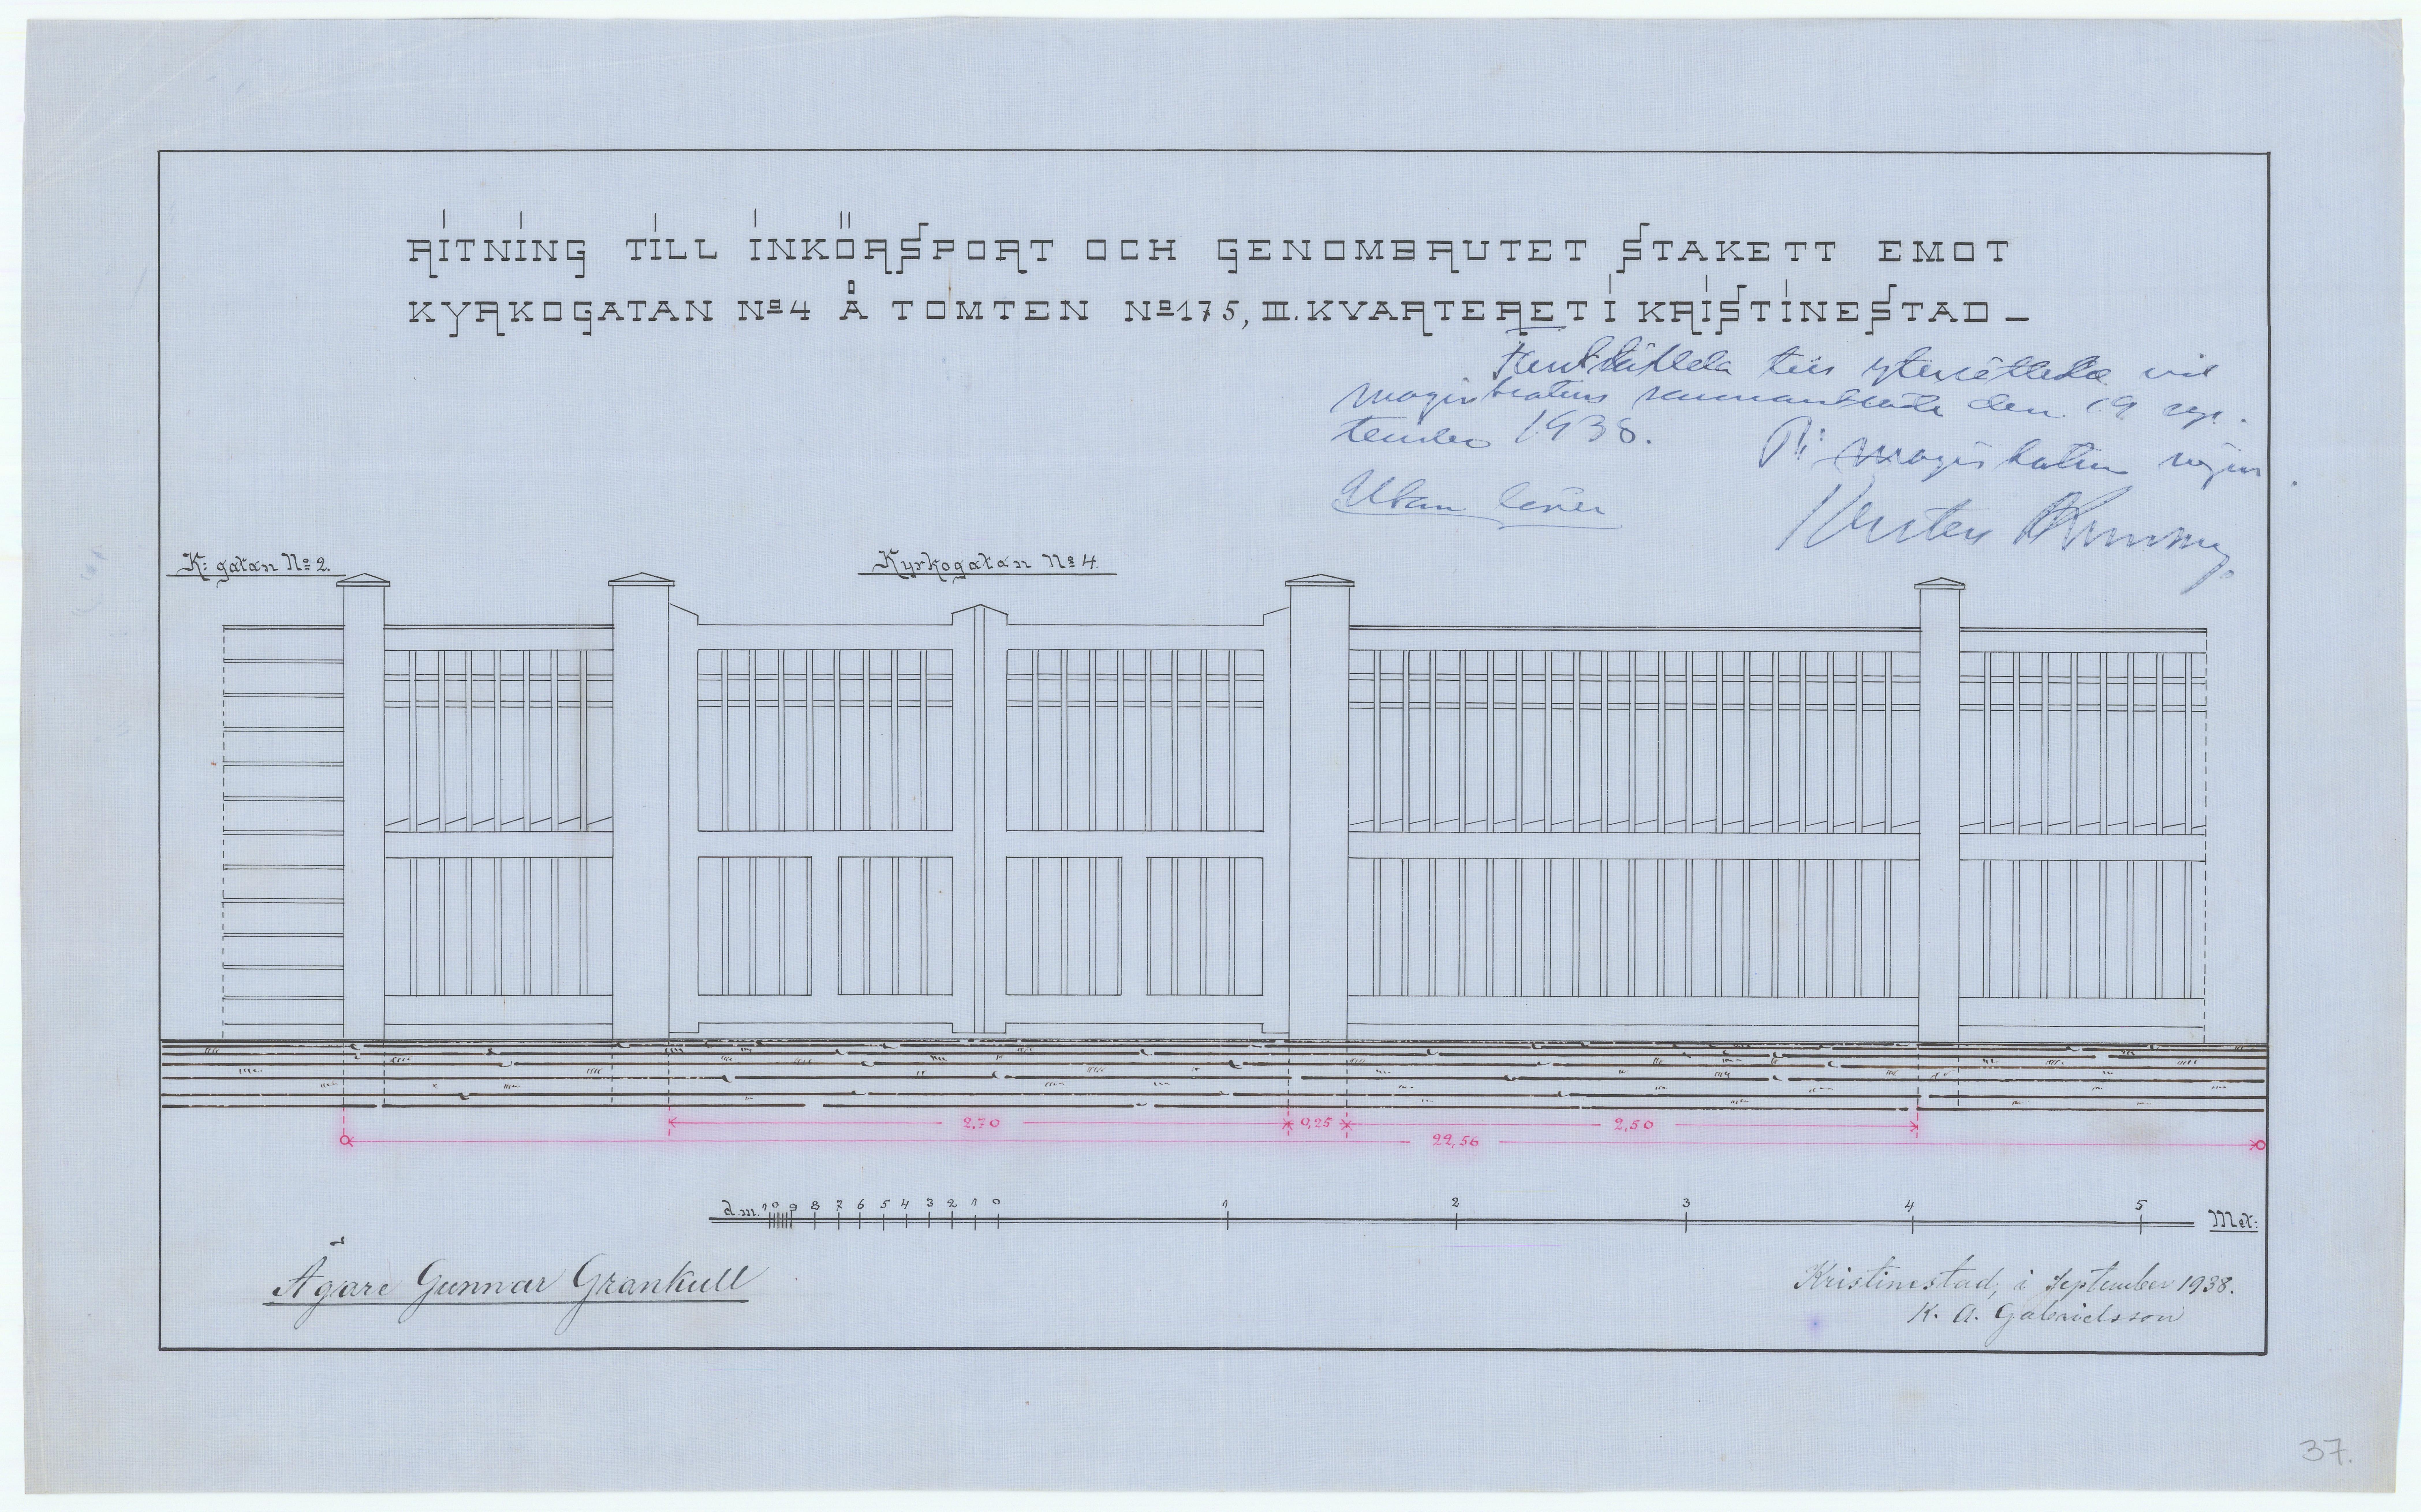 RITNING TILL INKÖRSPORT OCH GENOMBRUTET STAKETT EMOT
KYRKOGATAN Nº4 Å TOMTEN Nº175, III. KVARTERET I KRISTINESTAD–
magistratens sammanträde den 19 sep-
tember 1938.
På magistratens vägnar
K: gatan Nº 2.
Kyrkogatan Nº 4.
2,70 0,25 2,50
22,56
d.m. 10 9 8 7 6 5 4 3 2 1 0 1 2 3 4 5 Met:
Ägare Gunnar Grankull
Kristinestad, i September 1938.
K. A. Gabrielsson
37.